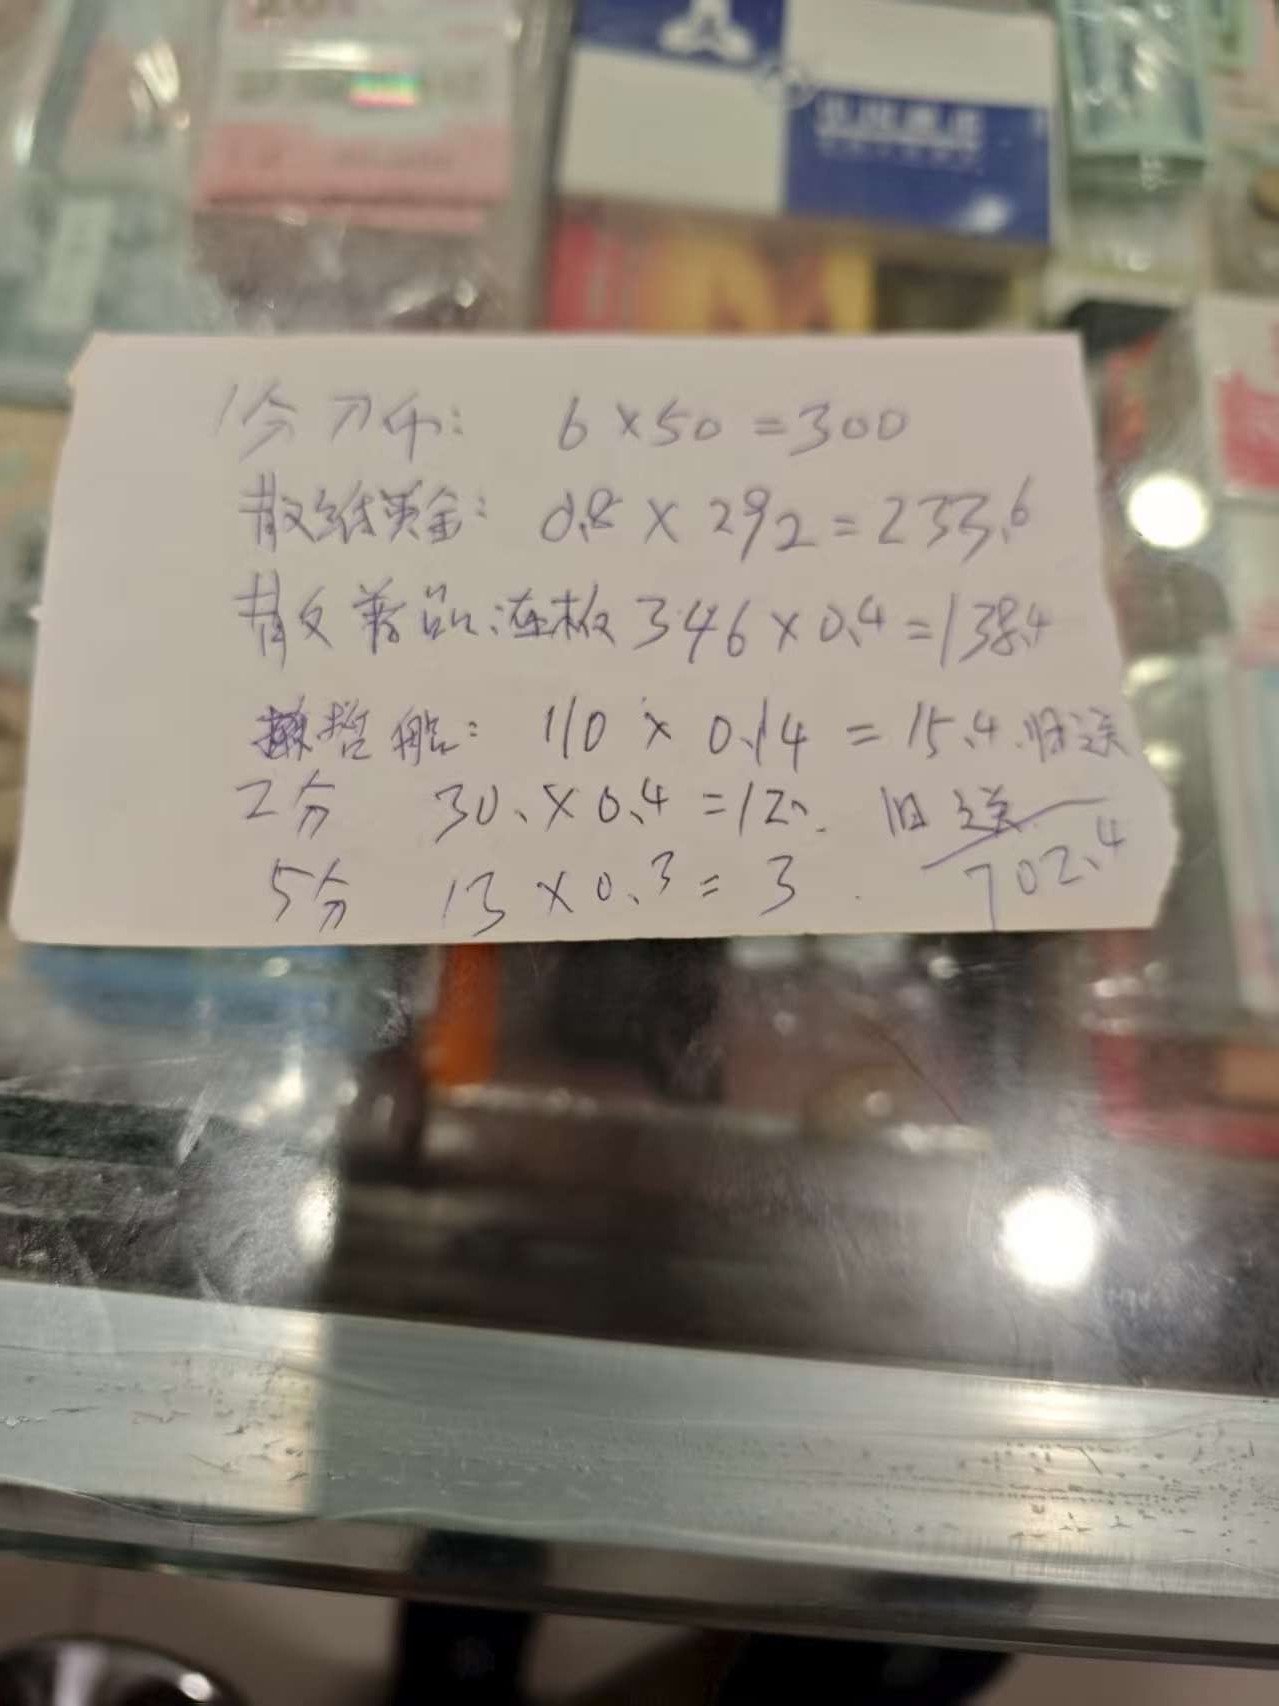 1分刀币: 6×50=300
散纸黄金: 0.8×292=233.6
散 普品 连板 346×0.4=138.4
船: 110×0.14=15.4. 旧送
2分 30.×0.4=12. 旧送
5分 13×0.3=3.
702.4